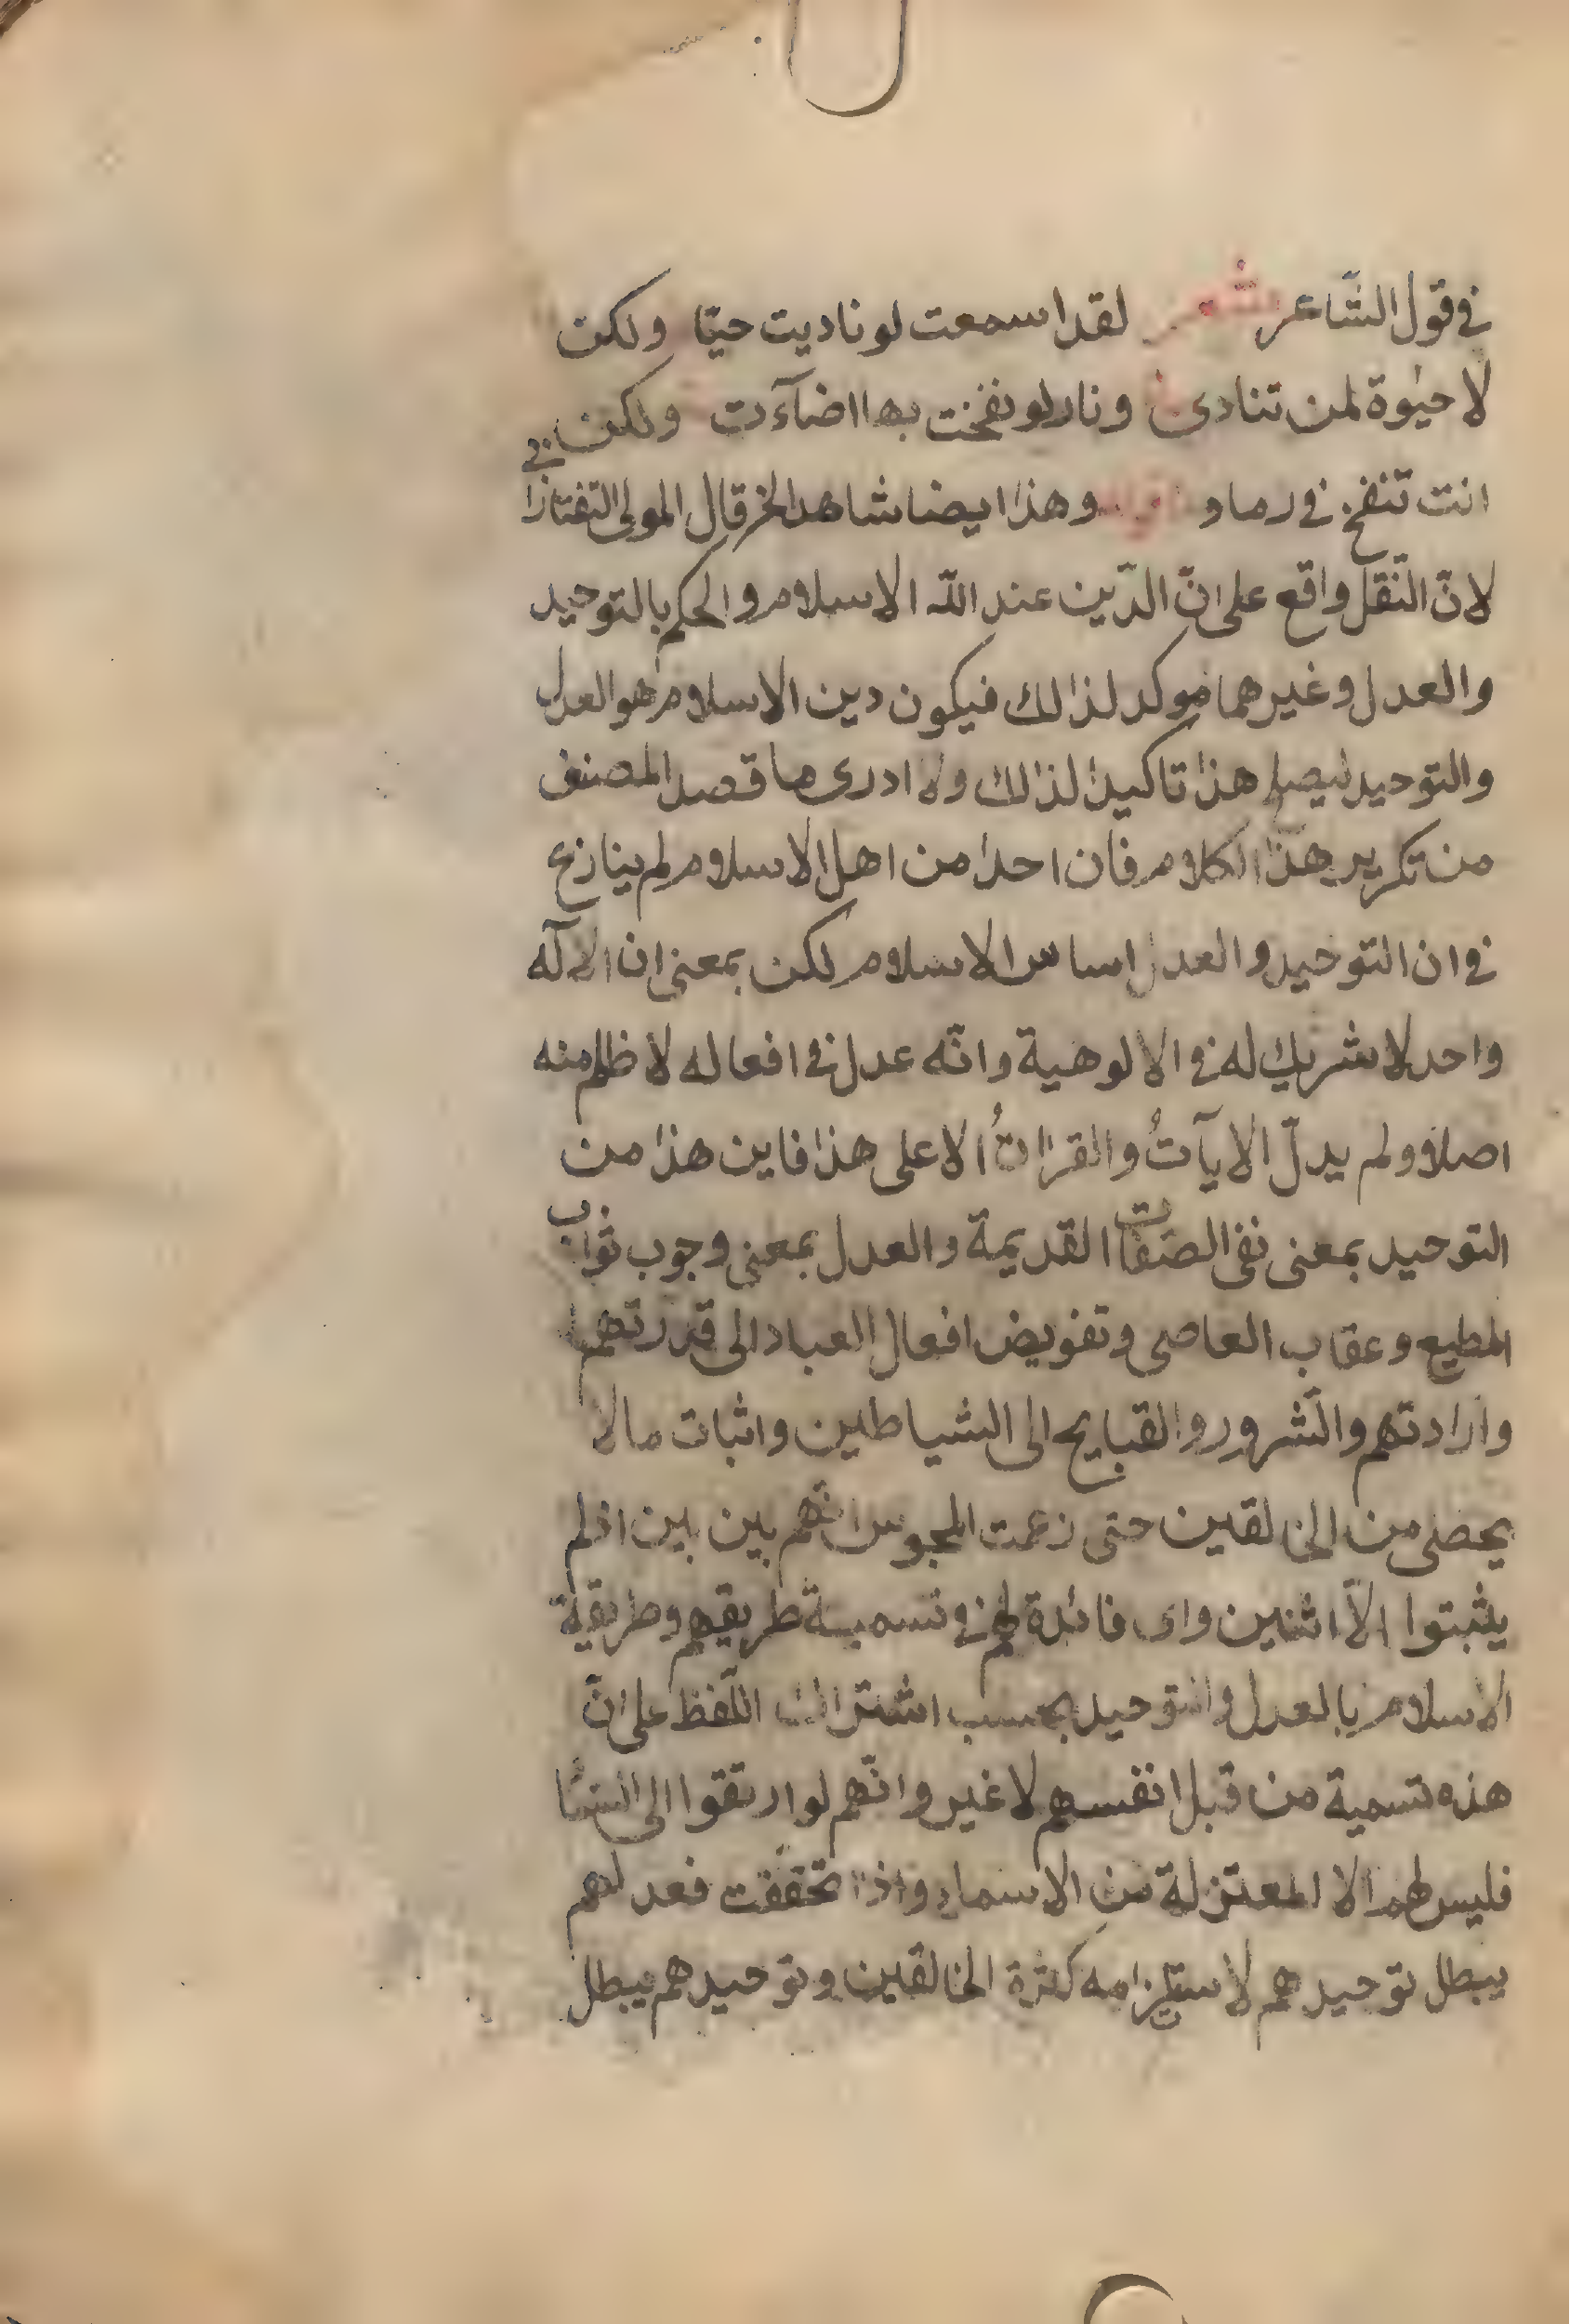 في قول الشّاعر شعر لقد اسمعت لو ناديت حيّا ولكن
لا حيٰوة لمن تنادى ونار لو نفخت بها اضآءت ولكن
انت تنفخ في رماد وهذا ايضا شاهد اخر قال المولى التفتازاني
لانّ النّقل واقع على انّ الدّين عند اللّه الاسلام والحكم بالتوحيد
والعدل وغيرهما موكد لذالك فيكون دين الاسلام هو العدل
والتوحيد ليصلح هذا تاكيدا لذالك ولا ادرى ما قصد المصنف
من تكرير هذا الكلام فان احدا من اهل الاسلام لم ينازع
في ان التوحيد والعدل اساس الاسلام لكن بمعنى ان الاله
واحد لا شريك له في الالوهية وانّه عدل في افعاله لا ظلم منه
اصلا ولم يدلّ الايآتُ والقرانُ الا على هذا فاين هذا من
التوحيد بمعنى نفى الصّفات القديمة والعدل بمعنى وجوب ثواب
المطيع وعقاب العاصى وتفويض افعال العباد الى قدرتهم
وارادتهم والشّرور والقبايح الى الشياطين واثبات مالا
يحصى من الخالقين حتى زعمت المجوس انّهم بين بين اذ لم
يثبتوا الاّ اثنين واى فائدة لهم في تسمية طريقهم وطريقة
الاسلام بالعدل والتوحيد بحسب اشتراك اللّفظ على انّ
هذه تسمية من قبل انفسهم لا غير وانّهم لو ارتقوا الى السّما
فليس لهم الا المعتزلة من الاسماء واذا تحققت فعدلهم
يبطل توحيدهم لاستلزامه كثرة الخالقين وتوحيدهم يبطل